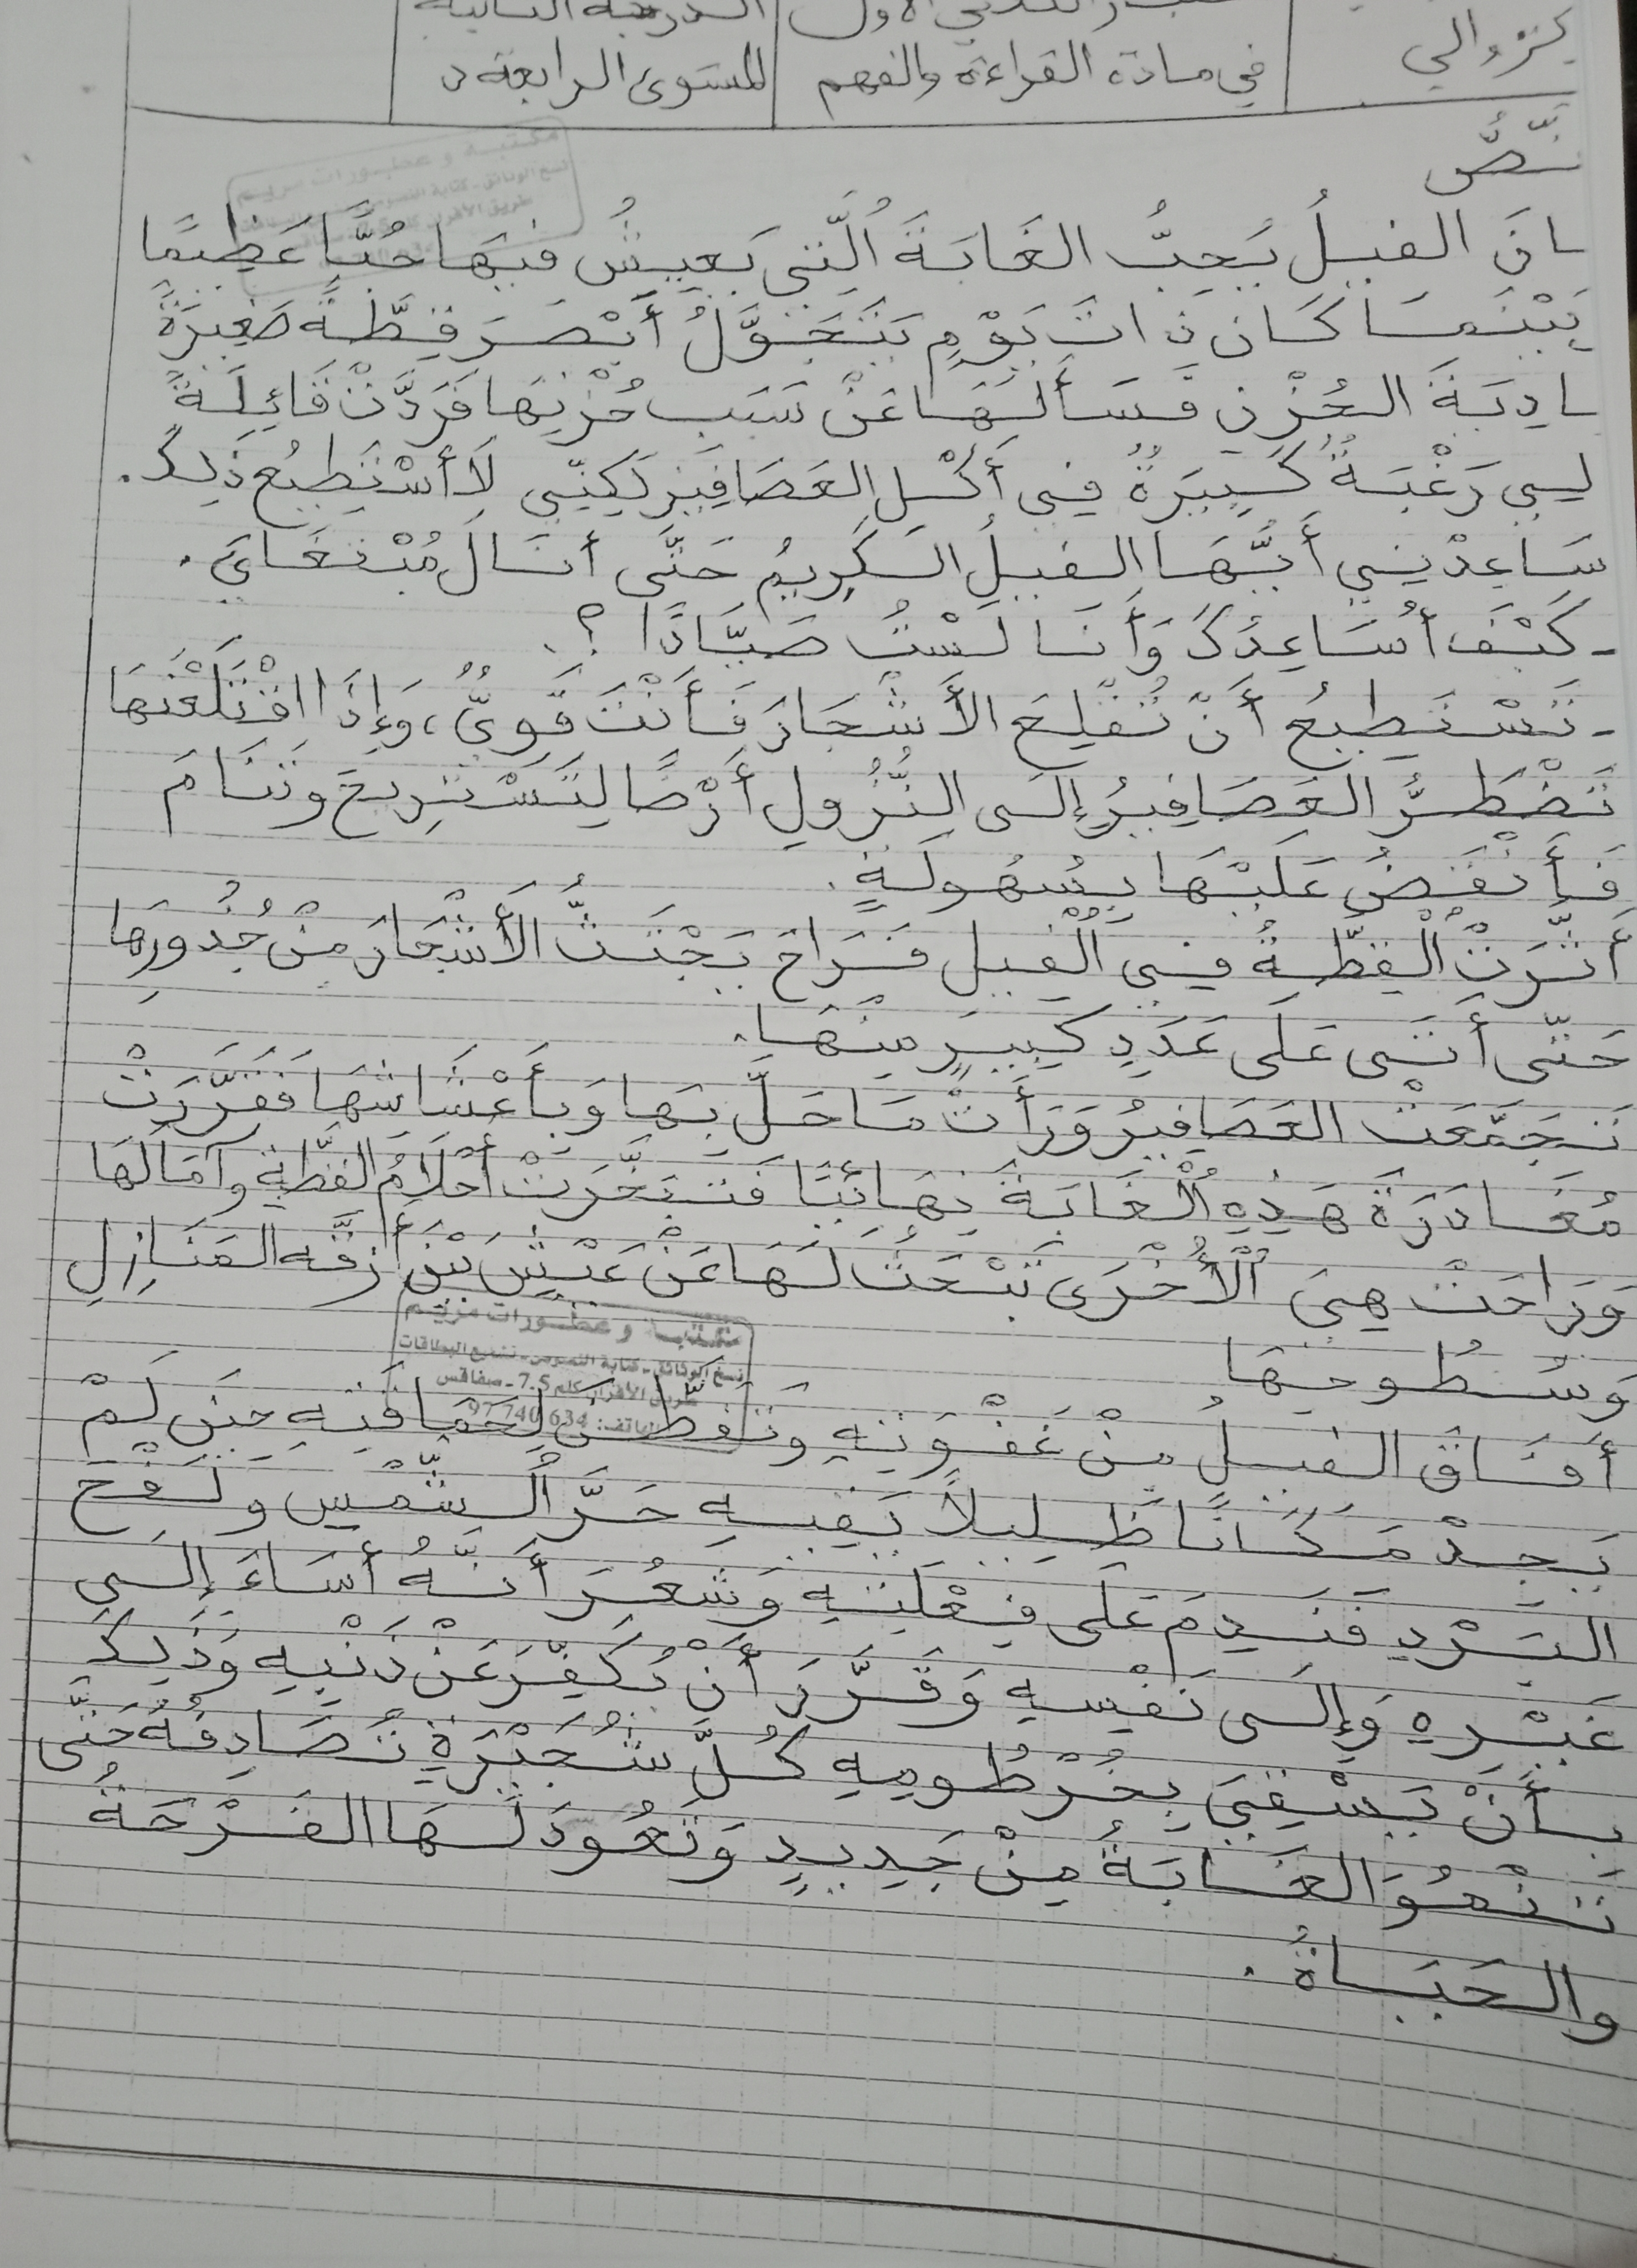 في مادة القراءة والفهم
المستوى الرابعة د
الفيلُ يُحِبُّ الغَابَةَ اُلَّتِي يَعِيشُ فِيهَا حُبًّا عَظِيمًا
بَيْنَمَا كَانَ ذَاتَ يَوْمٍ يَتَجَوَّلُ أَبْصَرَ قِطَّةً صَغِيرَةً
الحُزْنِ فَسَأَلَهَا عَنْ سَبَبِ حُزْنِهَا فَرَدَّتْ قَائِلَةً
لِي رَغْبَةٌ كَبِيرَةٌ فِي أَكْلِ العَصَافِيرِ لَكِنِّي لَا أَسْتَطِيعُ ذَلِكَ.
سَاعِدْنِي أَيُّهَا الفِيلُ الكَرِيمُ حَتَّى أَنَالَ مُبْتَغَايَ.
- كَيْفَ أُسَاعِدُكَ وَأَنَا لَسْتُ صَيَّادًا ؟.
- تَسْتَطِيعُ أَنْ تَقْلِعَ الأَشْجَارَ فَأَنْتَ قَوِيٌّ، وَإِذَا اقْتَلَعْتَهَا
تَضْطَرُّ العَصَافِيرُ إِلَى النُّزُولِ أَرْضًا لِتَسْتَرِيحَ وَتَنَامَ
فَأَنْقَضُّ عَلَيْهَا بِسُهُولَةٍ.
أَثَّرَتْ اُلْقِطَّةُ فِي اُلْفِيلِ فَرَاحَ يَجْتَثُّ الأَشْجَارَ مِنْ جُذُورِهَا
حَتَّى أَتَى عَلَى عَدَدٍ كَبِيرٍ مِنْهَا.
تَجَمَّعَتْ العَصَافِيرُ وَرَأَتْ مَا حَلَّ بِهَا وَبِأَعْشَاشِهَا فَقَرَّرَتْ
مُغَادَرَةَ هَذِهِ اُلْغَابَةَ نِهَائِيًّا فَتَبَخَّرَتْ أَحْلَامُ القِطَّةِ وآمَالُهَا
وَرَاحَتْ هِيَ اُلْأُخْرَى تَبْحَثُ لَهَا عَنْ عَيْشٍ بَيْنَ أَزِقَّةِ المَنَازِلِ
وَسُطُوحِهَا
أَفَاقَ الفِيلُ مِنْ غَفْوَتِهِ وَتَفَطَّنَ لِحَمَاقَتِهِ حِينَ لَمْ
يَجِدْ مَكَانًا ظَلِيلاً يَقِيهِ حَرَّ اُلشَّمْسِ وَلَفْحَ
البَرْدِ فَنَدِمَ عَلَى فِعْلَتِهِ وَشَعُرَ أَنَّهُ أَسَاءَ إِلَى
غَيْرِهِ وَإِلَى نَفْسِهِ وَقَرَّرَ أَنْ يُكَفِّرَ عَنْ ذَنْبِهِ وَذَلِكَ
بِأَنْ يَسْقِيَ بِخُرْطُومِهِ كُلَّ شُجَيْرَةٍ تُصَادِفُهُ حَتَّى
تَنْمُوَ الغَابَةُ مِنْ جَدِيدٍ وَتَعُودَ لَهَا الفَرْحَةُ
والحَيَاةُ.